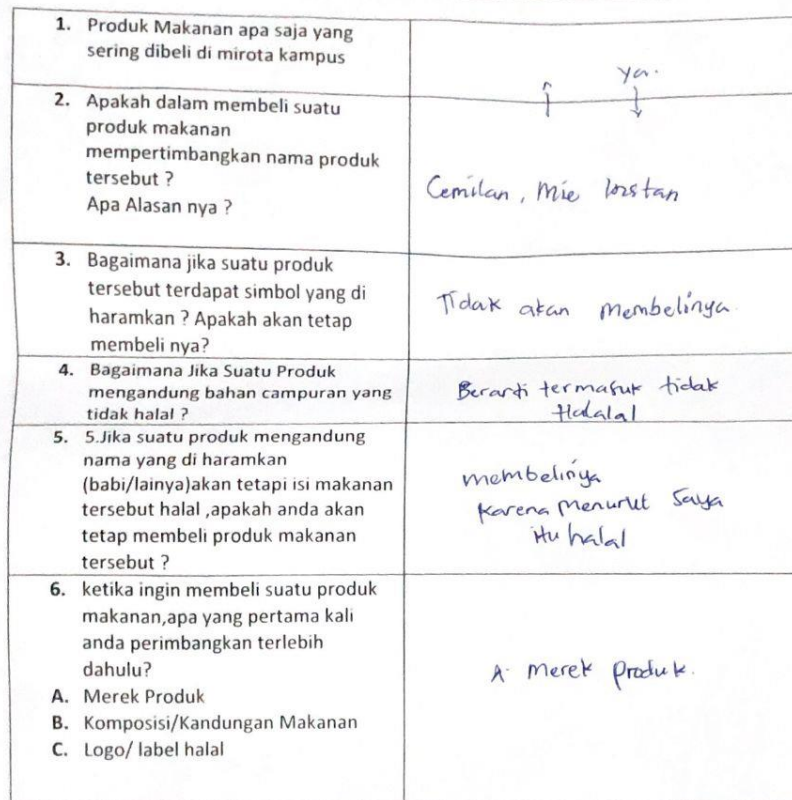 1. Produk Makanan apa saja yang
sering dibeli di mirota kampus
ya.
2. Apakah dalam membeli suatu
produk makanan
mempertimbangkan nama produk
tersebut ?
Apa Alasan nya ?
Cemilan, Mie Instan
3. Bagaimana jika suatu produk
tersebut terdapat simbol yang di
haramkan ? Apakah akan tetap
membeli nya?
Tidak akan membelinya.
4. Bagaimana Jika Suatu Produk
mengandung bahan campuran yang
tidak halal ?
Berarti termasuk tidak
Halalal
5. 5.Jika suatu produk mengandung
nama yang di haramkan
(babi/lainya)akan tetapi isi makanan
tersebut halal ,apakah anda akan
tetap membeli produk makanan
tersebut ?
membelinya
Karena menurut Saya
itu halal
6. ketika ingin membeli suatu produk
makanan,apa yang pertama kali
anda perimbangkan terlebih
dahulu?
A. Merek Produk
B. Komposisi/Kandungan Makanan
C. Logo/ label halal
A. merek Produk.